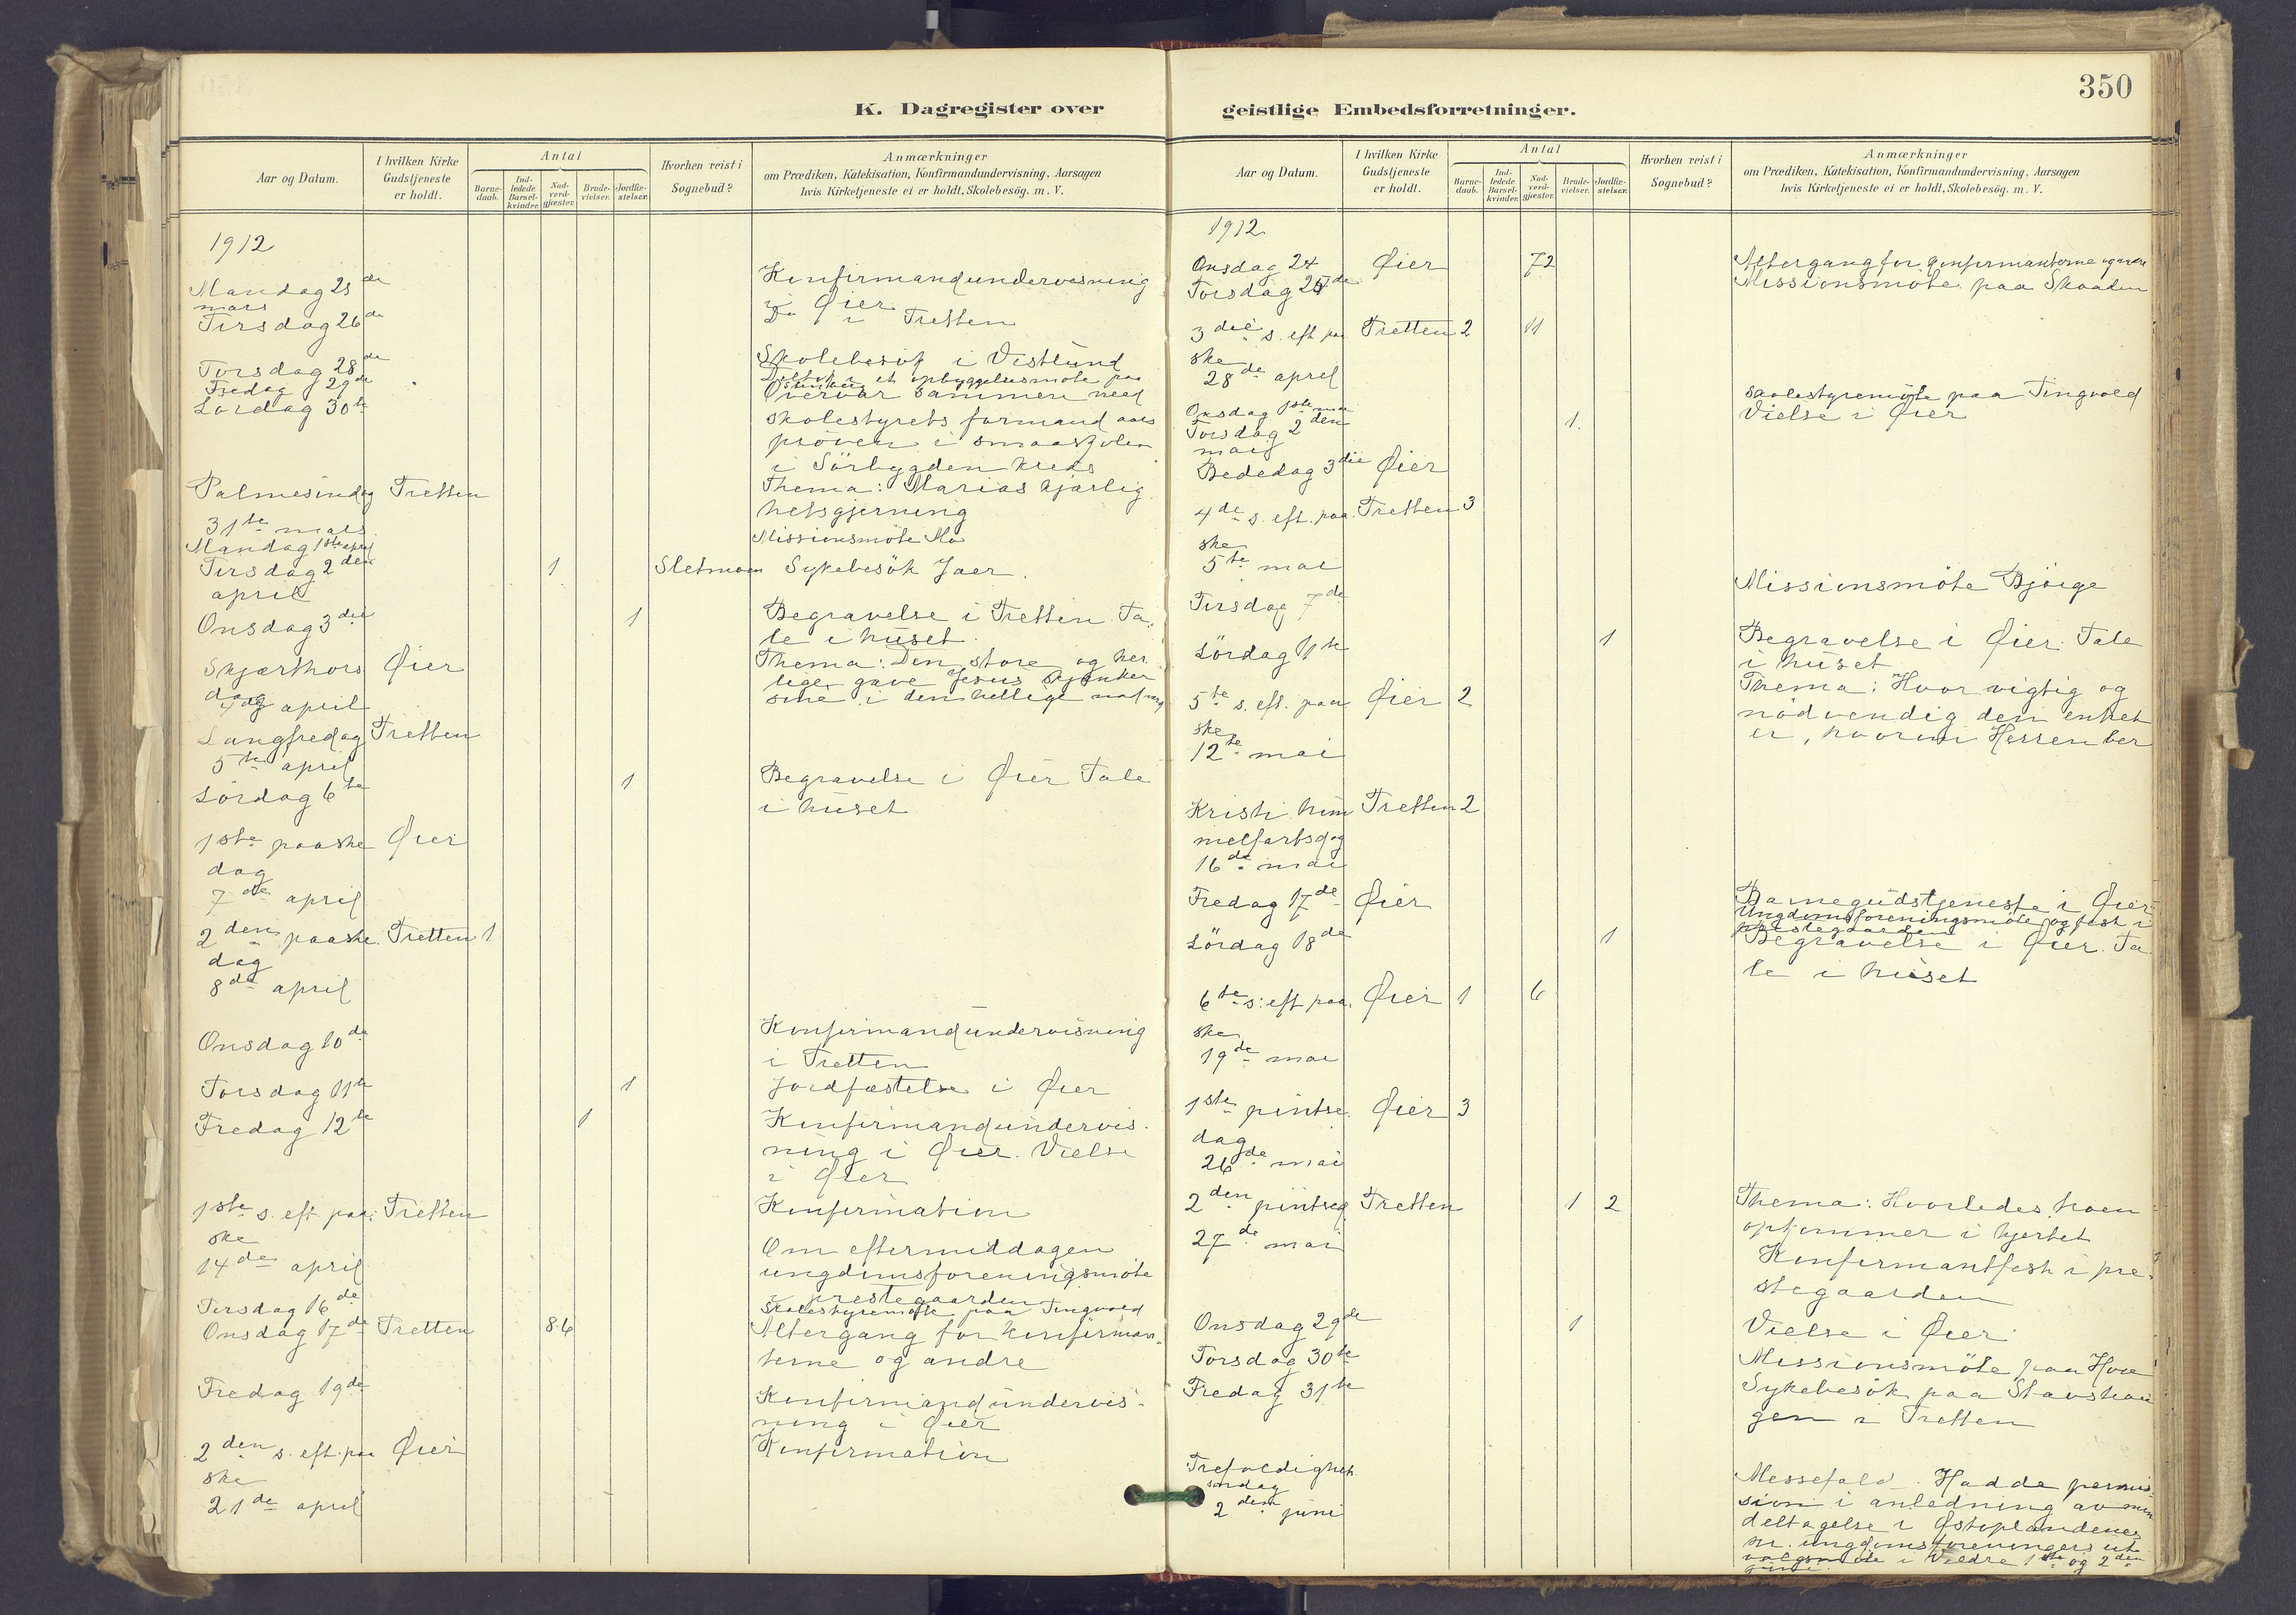 350
K. Dagregister over geistlige Embedsforretninger.
Aar og Datum.
I hvilken Kirke Gudstjeneste er holdt.
Antal
Barnedaab.
Indledede Barselkvinder.
Nadverdgjæster.
Brudevielser.
Jordfæstelser.
Hvorhen reist i Sognebud?
Anmærkninger
om Prædiken, Katekisation, Konfirmandundervisning, Aarsagen
hvis Kirketjeneste ei er holdt, Skolebesög. m. V.
1912
Mandag 25de mars
Konfirmandundervisning
i Øier
Tirsdag 26de
Do i Tretten
Torsdag 28de
Skolebesök i Vestlund
Fredag 29de
et opbyggelsesmøte paa
Lördag 30te
Overvar sammen med
skolestyrets formand aars
prøven i smaaskolen
i Sörbygden kreds
Palmesöndag Tretten
Thema: Marias kjærlig
hetsgjerning
31te mars
Mandag 1ste april
Missionsmöte Mo
Tirsdag 2den 1 Sletmoen Sykebesök Jaer.
april
Onsdag 3die 1 Begravelse i Tretten. Ta-
le i huset.
Skjærthors Øier
Thema: Den store og her
dag
lige gave Jesus skjænker
4de april
sine i den hellige nadver
Langfredag Tretten
5te april
Lördag 6te 1 Begravelse i Øier Tale
i huset
1ste paaske Øier
dag
7de april
2den paaske Tretten 1
dag
8de april
Onsdag 10de
Konfirmandundervisning
i Tretten
Torsdag 11te 1 Jordfæstelse i Øier
Fredag 12te 1 Konfirmandundervis-
ning i Øier. Vielse
i Øier
1ste s. eft. paa- Tretten Konfirmation
ske
14de april
Om eftermiddagen
ungdomsforeningsmöte
i prestegaarden
Tirsdag 16de
Skolestyremöte paa Tingvold
Onsdag 17de Tretten 86 Altergang for konfirman-
terne og andre
Fredag 19de
Konfirmandundervis-
ning i Øier
2den s. eft. paa Øier Konfirmation
ske
21de april
Aar og Datum.
I hvilken Kirke Gudstjeneste er holdt.
Antal
Barnedaab.
Indledede Barselkvinder.
Nadverdgjæster.
Brudevielser.
Jordfæstelser.
Hvorhen reist i Sognebud?
Anmærkninger
om Prædiken, Katekisation, Konfirmandundervisning, Aarsagen
hvis Kirketjeneste ei er holdt, Skolebesög. m. V.
1912.
Onsdag 24 Øier 72 Altergang for konfirmanterne og andre
Torsdag 25de Missionsmöte paa Skaaden
3die s. eft. paa Tretten 2 11
ske
28de april
Onsdag 1ste mai
skolestyremöte paa Tingvold
Torsdag 2den 1. Vielse i Øier
mai
Bededag 3die Øier
4de s. eft. paa- Tretten 3
ske
5te mai
Tirsdag 7de
Missionsmöte Bjöige
Lördag 11te 1 Begravelse i Øier. Tale
i huset
5te s. eft. paa Øier 2
ske
12te mai
Thema: Hvor vigtig og
nödvendig den enhet
er, hvorom Herren ber
Kristi him Tretten 2
melfartsdag
16de mai
Fredag 17de Øier
Barnegudstjeneste i Øier
Ungdomsforeningsmöte og fest i
prestegaarden
Lördag 18de 1 Begravelse i Øier. Ta
le i huset
6te s. eft. paa- Øier 1 6
ske
19de mai
1ste pintse- Øier 3
dag
26de mai
2den pintsed. Tretten 1 2
27de mai
Thema: Hvorledes troen
opkommer i hjertet
Konfirmantfest i pre-
stegaarden
Onsdag 29de 1 Vielse i Øier
Torsdag 30te
Missionsmöte paa Hove
Fredag 31te
Sykebesök paa Stavshau
gen i Tretten
Trefoldighets
söndag
2den juni
Messefald. Hadde permis-
sion i anledning av min
deltagelse i Østoplandenes
ungdomsforeningers ut
valgsmöte i Veldre 1ste og 2den
juni.